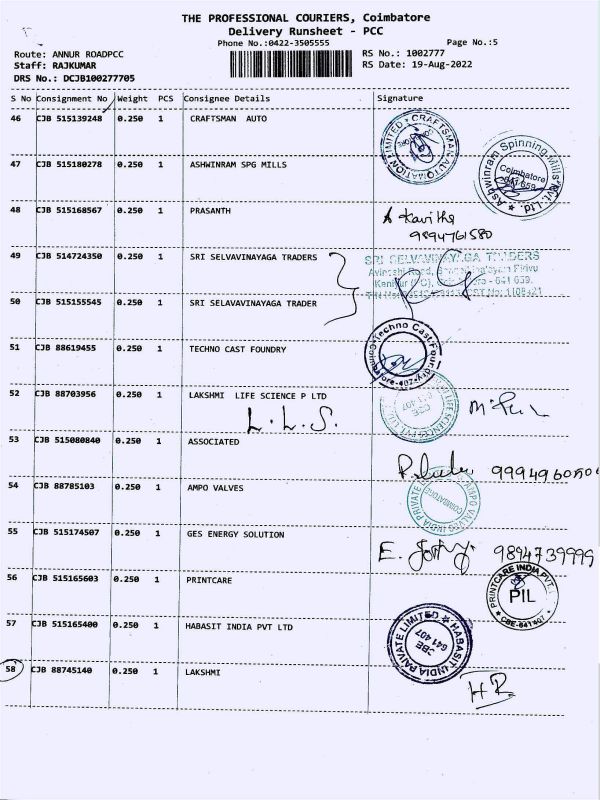 THE PROFESSIONAL COURIERS, Coimbatore
Delivery Runsheet - PCC
Phone No.:0422-3505555 Page No.:5
Route: ANNUR ROADPCC RS No.: 1002777
Staff: RAJKUMAR RS Date: 19-Aug-2022
DRS No.: DCJB100277705
S No Consignment No Weight PCS Consignee Details Signature
46 CJB 515139248 0.250 1 CRAFTSMAN AUTO
CRAFTSMAN AUTOMATION LIMITED
47 CJB 515180278 0.250 1 ASHWINRAM SPG MILLS
Ashwinram Spinning Mills Pvt. Ltd.
Coimbatore
641 659
48 CJB 515168567 0.250 1 PRASANTH
A Kavitha
9894761580
49 CJB 514724350 0.250 1 SRI SELVAVINAYAGA TRADERS
SRI SELVAVINAYAGA TRADERS
Avinashi Road,
50 CJB 515155545 0.250 1 SRI SELAVAVINAYAGA TRADER
51 CJB 88619455 0.250 1 TECHNO CAST FOUNDRY
Techno Cast Foundry
52 CJB 88703956 0.250 1 LAKSHMI LIFE SCIENCE P LTD
L.L.S.
CBE
641 407
53 CJB 515080840 0.250 1 ASSOCIATED
54 CJB 88785103 0.250 1 AMPO VALVES
AMPO VALVES INDIA PRIVATE
COIMBATORE
55 CJB 515174507 0.250 1 GES ENERGY SOLUTION
E. 9894739999
56 CJB 515165603 0.250 1 PRINTCARE
PRINTCARE INDIA PVT.
PIL
CBE-641407
57 CJB 515165400 0.250 1 HABASIT INDIA PVT LTD
HABASIT INDIA PRIVATE LIMITED
CBE
641 407
58 CJB 88745140 0.250 1 LAKSHMI
HR